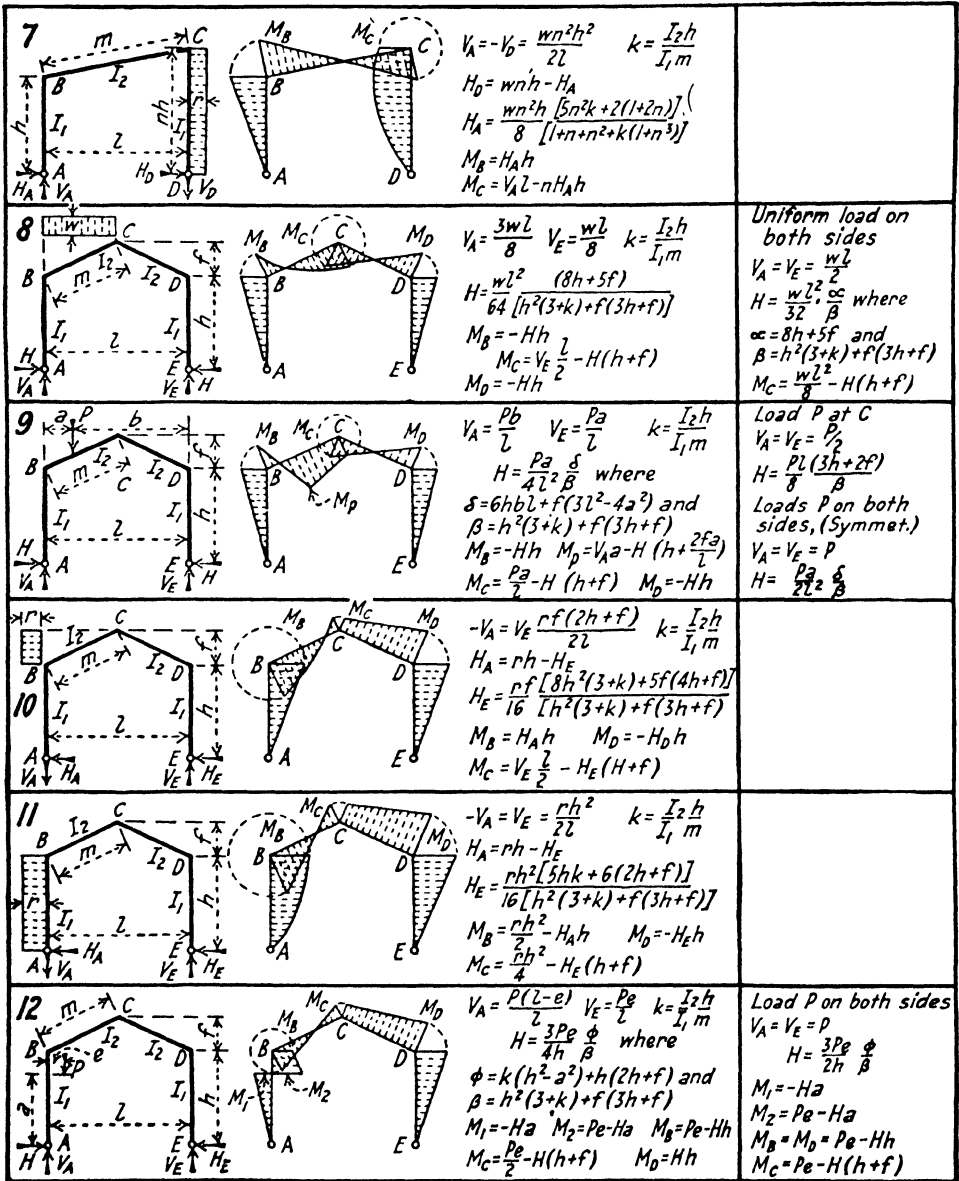 7
m
C
I₂
B
h
nh
r
I₁
I₁
l
H_A
A
V_A
H_D
D
V_D
M_B
M_C
C
B
A
D
V_A=-V_D= wn²h²/2l k= I₂h/I₁m
H_D= wnh-H_A
H_A= wn²h/8 [5n²k+2(1+2n)]/[1+n+n²+k(1+n³)]
M_B=H_Ah
M_C=V_Al-nH_Ah
8
w
C
B
I₂
m
I₂
D
f
I₁
I₁
h
l
H
A
V_A
E
V_E
H
M_B
M_C
C
M_D
B
D
A
E
V_A= 3wl/8 V_E= wl/8 k= I₂h/I₁m
H= wl²/64 (8h+5f)/[h²(3+k)+f(3h+f)]
M_B=-Hh
M_C=V_E l/2 -H(h+f)
M_D=-Hh
Uniform load on
both sides
V_A=V_E= wl/2
H= wl²/32 · ∝/β where
∝=8h+5f and
β=h²(3+k)+f(3h+f)
M_C= wl²/8 -H(h+f)
9
a
P
b
B
I₂
m
C
I₂
D
f
I₁
I₁
h
l
H
A
V_A
E
V_E
H
M_B
M_C
C
M_D
B
D
M_P
A
E
V_A= Pb/l V_E= Pa/l k= I₂h/I₁m
H= Pa/4l² δ/β where
δ=6hbl+f(3l²-4a²) and
β=h²(3+k)+f(3h+f)
M_B=-Hh M_P=V_Aa-H (h+ 2fa/l)
M_C= Pa/l -H (h+f) M_D=-Hh
Load P at C
V_A=V_E= P/2
H= Pl/8 (3h+2f)/β
Loads P on both
sides,(Symmet.)
V_A=V_E=P
H= Pa/2l² δ/β
10
r
C
B
I₂
m
I₂
D
f
I₁
I₁
h
l
A
V_A
H_A
E
V_E
H_E
M_B
M_C
C
M_D
B
D
A
E
-V_A=V_E rf(2h+f)/2l k= I₂h/I₁m
H_A=rh-H_E
H_E= rf/16 [8h²(3+k)+5f(4h+f)]/[h²(3+k)+f(3h+f)
M_B=H_Ah M_D=-H_Dh
M_C=V_E l/2 -H_E(H+f)
11
C
B
I₂
m
I₂
D
f
r
I₁
I₁
h
l
A
V_A
H_A
E
V_E
H_E
M_B
M_C
C
M_D
B
D
A
E
-V_A=V_E= rh²/2l k= I₂h/I₁m
H_A=rh-H_E
H_E= rh²[5hk+6(2h+f)]/16[h²(3+k)+f(3h+f)]
M_B= rh²/2 -H_Ah M_D=-H_Eh
M_C= rh²/4 -H_E(h+f)
12
m
C
B
e
I₂
I₂
D
f
P
a
I₁
I₁
h
l
H
A
V_A
E
V_E
H_E
M_B
M_C
C
M_D
B
D
M₁
M₂
A
E
V_A= P(l-e)/l V_E= Pe/l k= I₂h/I₁m
H= 3Pe/4h ϕ/β where
ϕ=k(h²-a²)+h(2h+f) and
β=h²(3+k)+f(3h+f)
M₁=-Ha M₂=Pe-Ha M_B=Pe-Hh
M_C= Pe/2 -H(h+f) M_D=Hh
Load P on both sides
V_A=V_E=P
H= 3Pe/2h ϕ/β
M₁=-Ha
M₂=Pe-Ha
M_B=M_D=Pe-Hh
M_C=Pe-H(h+f)